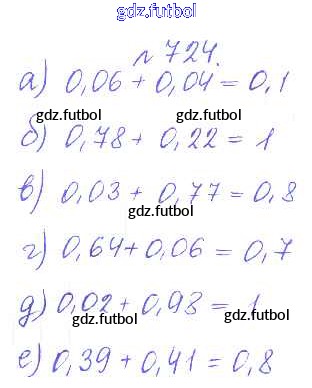 gdz.futbol
№ 724.
а) 0,06 + 0,04 = 0,1
gdz.futbol gdz.futbol
б) 0,78 + 0,22 = 1
в) 0,03 + 0,77 = 0,8
gdz.futbol
г) 0,64 + 0,06 = 0,7
д) 0,02 + 0,98 = 1
gdz.futbol gdz.futbol
е) 0,39 + 0,41 = 0,8